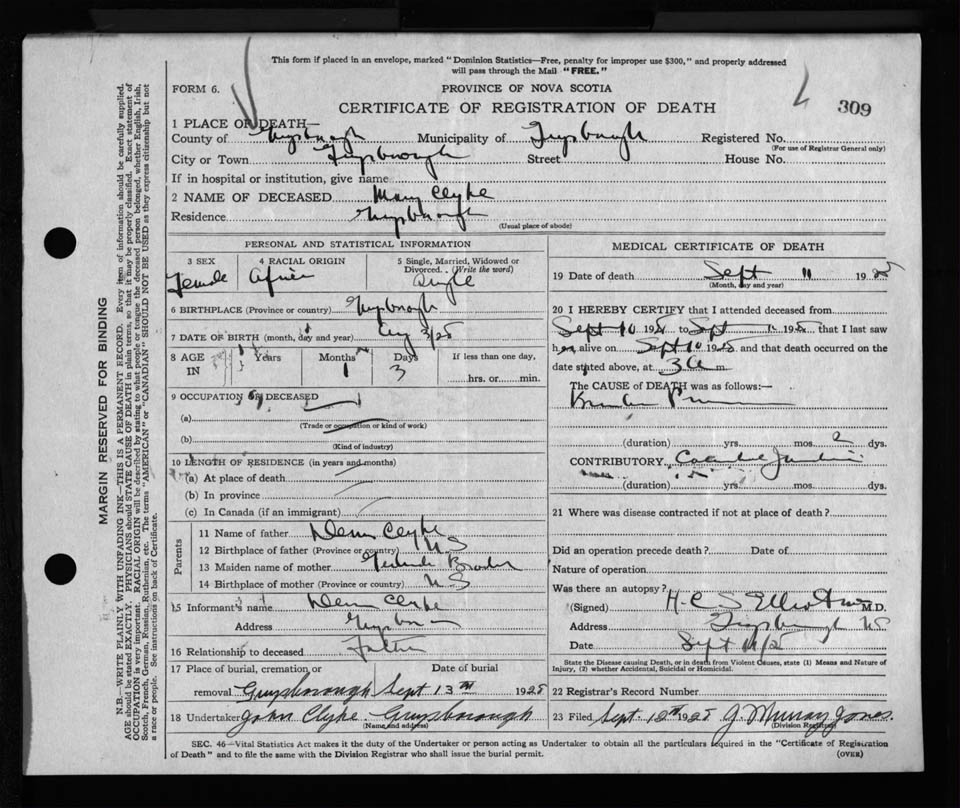 This form if placed in an envelope, marked "Dominion Statistics—Free, penalty for improper use $300," and properly addressed
will pass through the Mail "FREE."
FORM 6.
PROVINCE OF NOVA SCOTIA
CERTIFICATE OF REGISTRATION OF DEATH
309
1 PLACE OF DEATH—
County of Guysborough Municipality of Guysborough Registered No.
(For use of Registrar General only)
City or Town Guysborough Street House No.
If in hospital or institution, give name
2 NAME OF DECEASED Mary Clyke
Residence Guysborough
(Usual place of abode)
PERSONAL AND STATISTICAL INFORMATION
3 SEX 4 RACIAL ORIGIN 5 Single, Married, Widowed or
Divorced. (Write the word)
Female African Single
6 BIRTHPLACE (Province or country) Guysborough
7 DATE OF BIRTH (month, day and year) Aug 8/25
8 AGE IN Years Months Days If less than one day,
1 3 hrs. or min.
9 OCCUPATION OF DECEASED
(a)
(Trade or occupation or kind of work)
(b)
(Kind of industry)
10 LENGTH OF RESIDENCE (in years and months)
(a) At place of death
(b) In province
(c) In Canada (if an immigrant)
Parents
11 Name of father Clyke
12 Birthplace of father (Province or country) N S
13 Maiden name of mother Gertrude
14 Birthplace of mother (Province or country) N S
15 Informant's name Clyke
Address
16 Relationship to deceased Father
17 Place of burial, cremation or Date of burial
removal Guysborough Sept 13th 1925
18 Undertaker John Clyke Guysborough
(Name and address)
MEDICAL CERTIFICATE OF DEATH
19 Date of death Sept 11 1925
(Month, day and year)
20 I HEREBY CERTIFY that I attended deceased from
Sept 10 192 to Sept 192 that I last saw
h alive on Sept 10 1925 and that death occurred on
date stated above, at 3 a m.
The CAUSE of DEATH was as follows:—
(duration) yrs. mos. 2 dys.
CONTRIBUTORY
(duration) yrs. mos. dys.
21 Where was disease contracted if not at place of death?
Did an operation precede death? Date of
Nature of operation
Was there an autopsy?
(Signed) H. C. S. Elliot M.D.
Address Guysborough NS
Date Sept 11/25
State the Disease causing Death, or in death from Violent Causes, state (1) Means and Nature of
Injury, (2) whether Accidental, Suicidal or Homicidal.
22 Registrar's Record Number
23 Filed Sept. 12th 1925 J. Murray Jones.
(Division Registrar)
SEC. 46—Vital Statistics Act makes it the duty of the Undertaker or person acting as Undertaker to obtain all the particulars required in the "Certificate of Registration
of Death" and to file the same with the Division Registrar who shall issue the burial permit. (OVER)
MARGIN RESERVED FOR BINDING
N.B.—WRITE PLAINLY WITH UNFADING INK—THIS IS A PERMANENT RECORD. Every item of information should be carefully supplied.
AGE should be stated EXACTLY. PHYSICIANS should STATE CAUSE OF DEATH in plain terms, so that it may be properly classified. Exact statement of
OCCUPATION is very important. RACIAL ORIGIN will be described by stating to what people or tongue the deceased person belonged, whether English, Irish,
Scotch, French, German, Russian, Ruthenian, etc. The terms "AMERICAN" or "CANADIAN" SHOULD NOT BE USED as they express citizenship but not
a race or people. See instructions on back of Certificate.